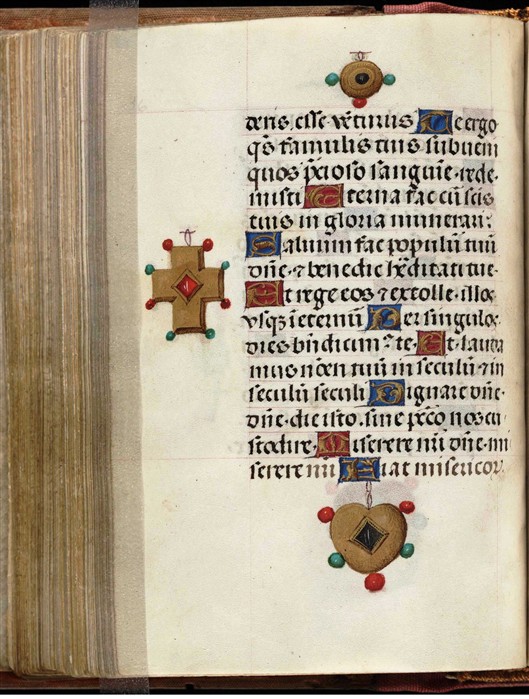 deris esse vẽturus Te ergo
q̃s famulis tuis subueni
quos p̃cioso sanguine rede⸗
misti Eterna fac cũ scis
tuis in gloria munerari:
Saluum fac populũ tuũ
dñe ⁊ benedic h̃editati tue⸗
Et rege eos ⁊ extolle illos
vsqꝫ ĩ eternũ Per singulos
dies bñdicimꝰ te Et lauda
mus noẽn tuũ in seculũ ⁊ in
seculũ seculi Dignare dñe⸗
dñe die isto sine pẽco nos cu
stodire Miserere nr̃i dñe mi
serere nr̃i Fiat misericor